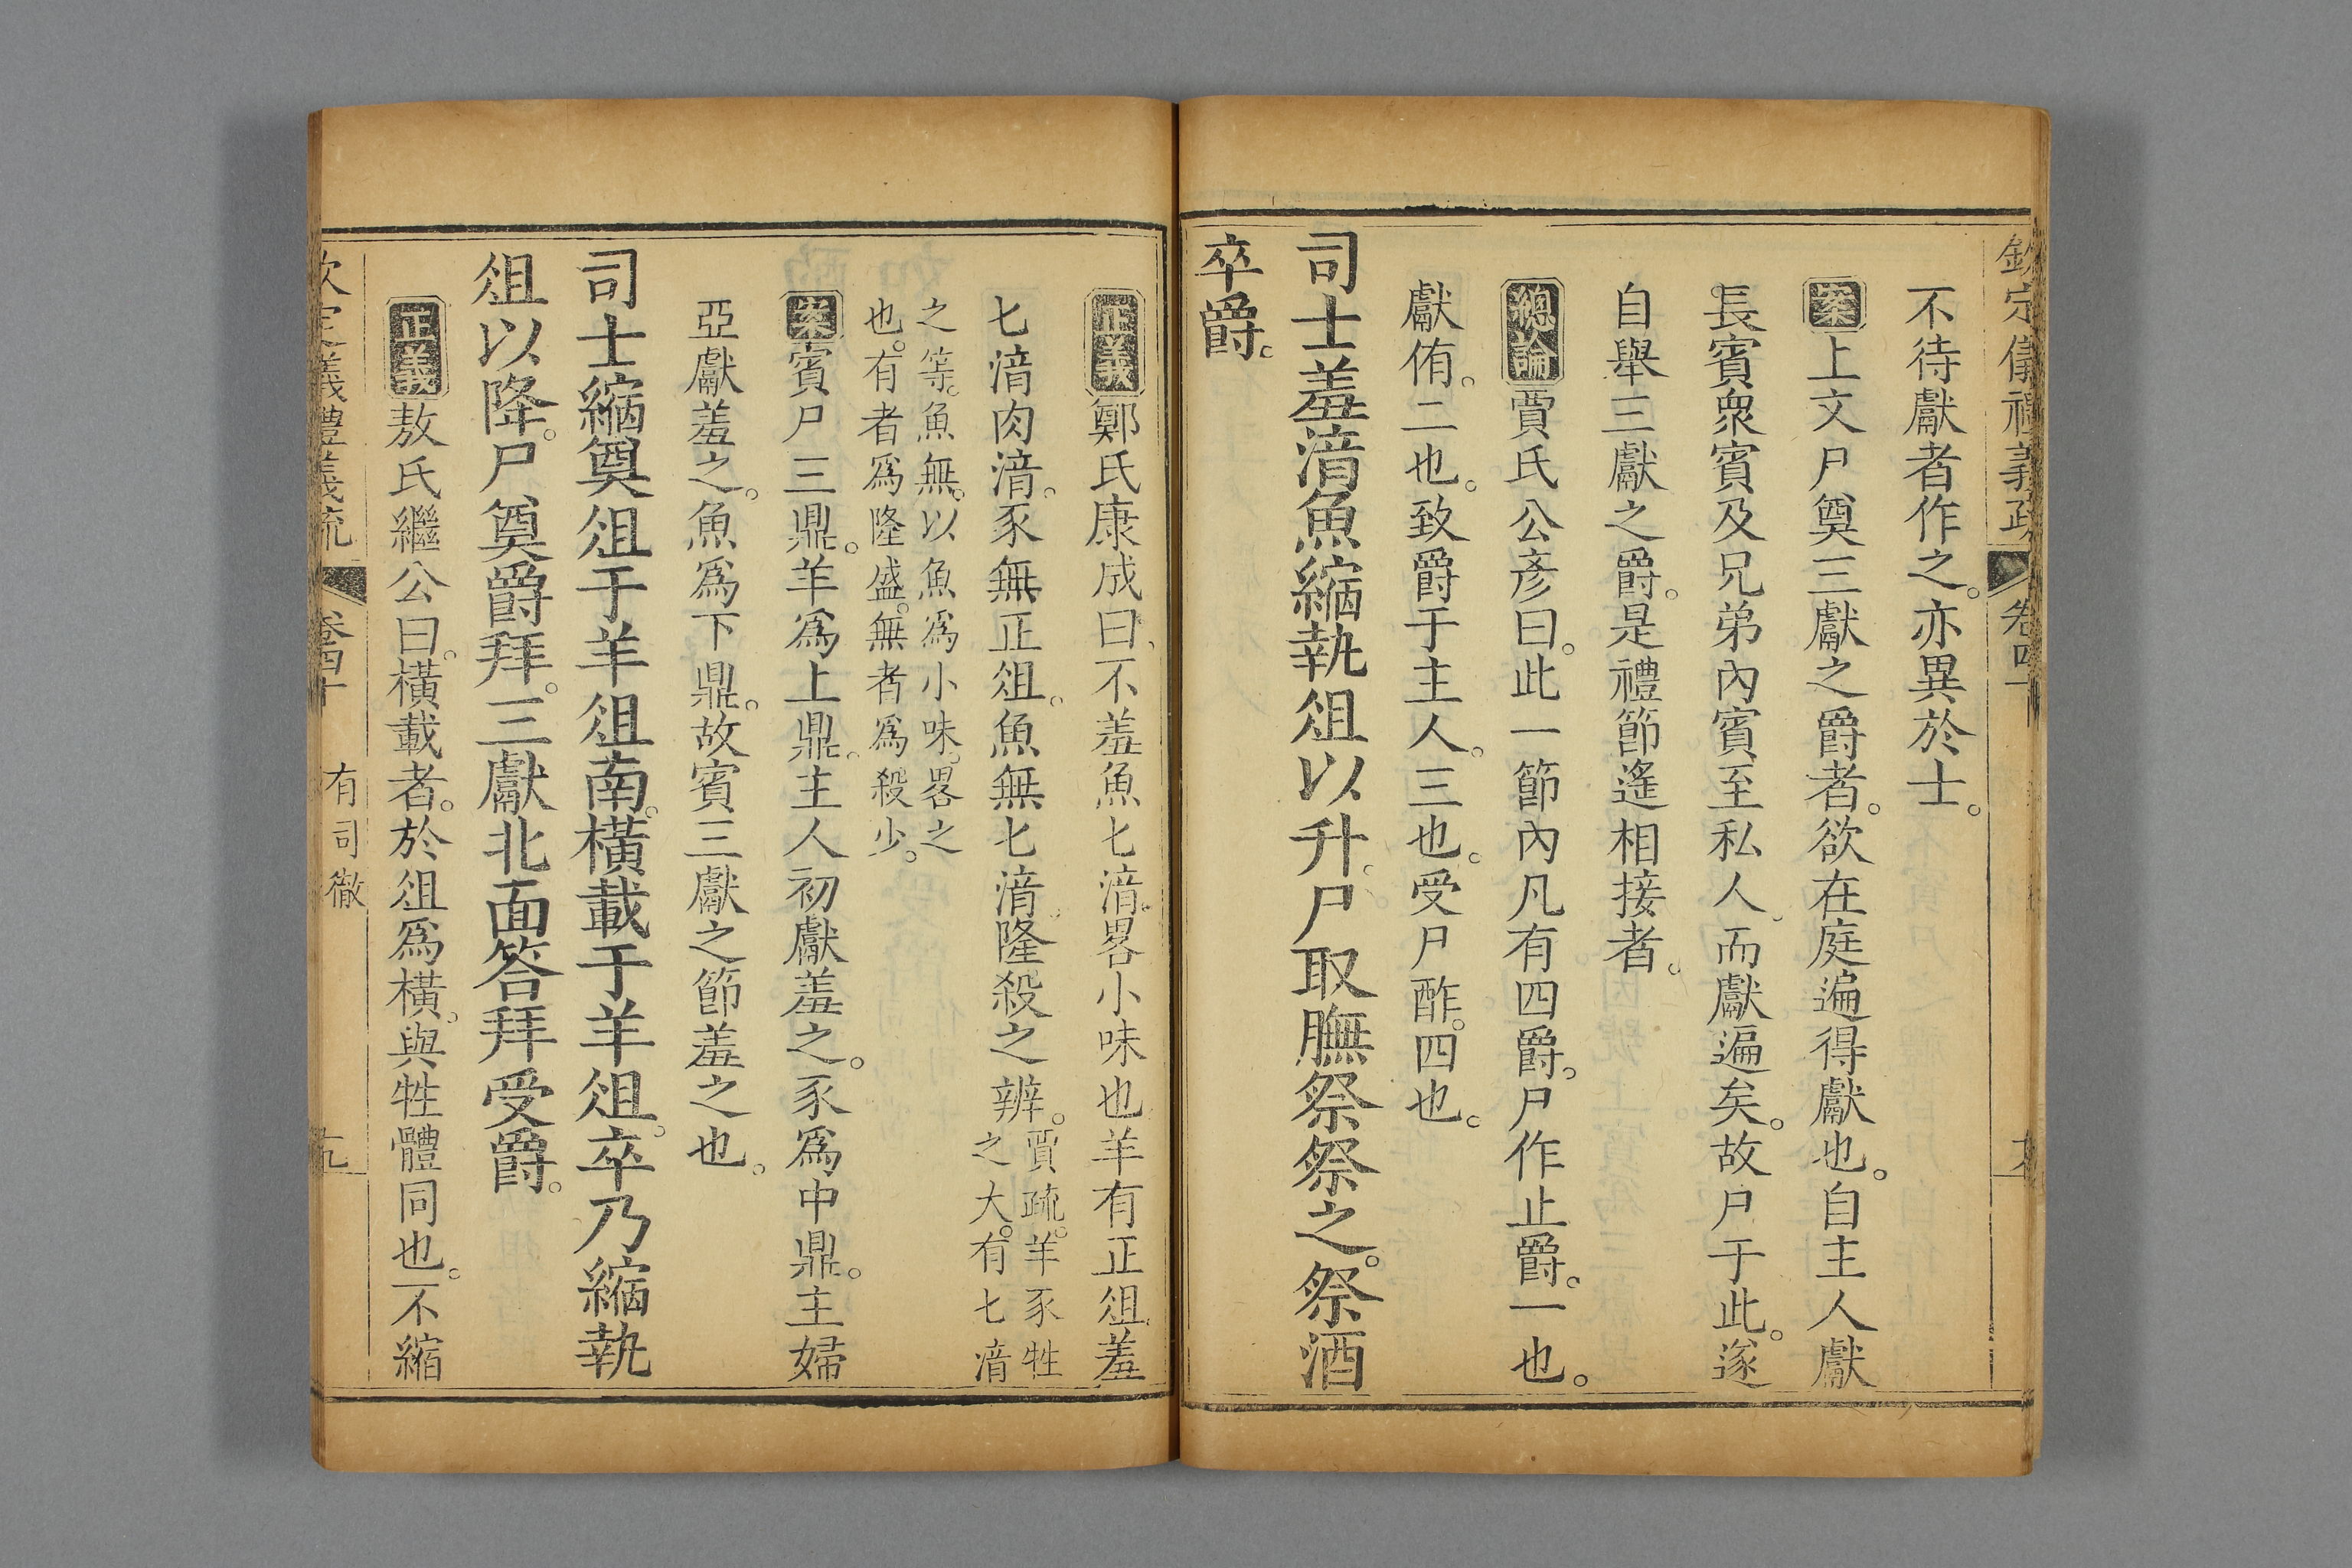 欽定儀禮義疏 卷四十
不待獻者作之。亦異於士。
案上文尸奠三獻之爵者。欲在庭遍得獻也。自主人獻
長賓衆賓及兄弟內賓至私人。而獻遍矣。故尸于此。遂
自舉三獻之爵。是禮節遙相接者。
總論賈氏公彥曰。此一節內凡有四爵。尸作止爵。一也。
獻侑。二也。致爵于主人。三也。受尸酢。四也。
司士羞湆魚縮執俎以升。尸取膴祭祭之。祭酒
卒爵。
正義鄭氏康成曰、不羞魚匕湆。畧小味也。羊有正俎。羞
匕湆肉湆。豕無正俎。魚無匕湆。隆殺之辨。賈疏。羊豕牲
之大。有匕湆
之等。魚無。以魚爲小味。畧之
也。有者爲隆盛。無者爲殺少。
案賓尸三鼎。羊爲上鼎。主人初獻羞之。豕爲中鼎。主婦
亞獻羞之。魚爲下鼎。故賓三獻之節羞之也。
司士縮奠俎于羊俎南。橫載于羊俎。卒乃縮執
俎以降。尸奠爵拜。三獻北面答拜受爵。
正義敖氏繼公曰。橫載者。於俎爲橫。與牲體同也。不縮
欽定儀禮義疏 卷四十 有司徹